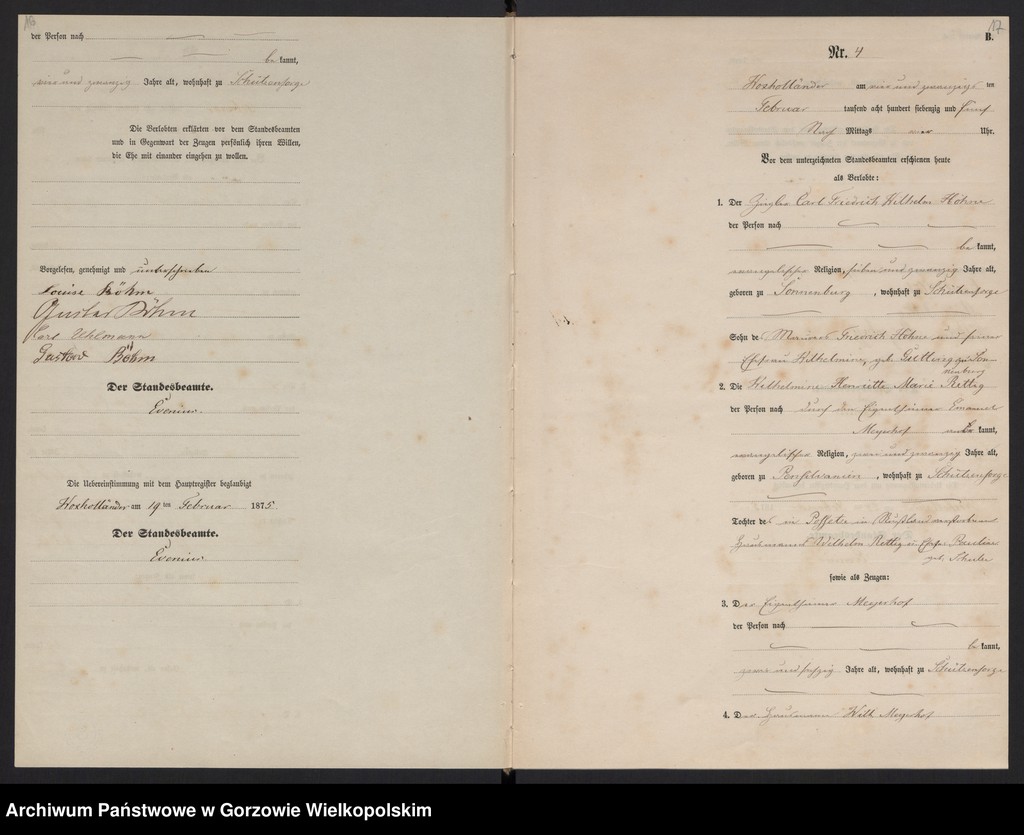 der Person nach
be kannt,
vier und zwanzig Jahre alt, wohnhaft zu Schützensorge
Die Verlobten erklärten vor dem Standesbeamten
und in Gegenwart der Zeugen persönlich ihren Willen,
die Ehe mit einander eingehen zu wollen.
Vorgelesen, genehmigt und unterschrieben
Louise Böhm
Gustav Böhm
Carl Uhlmann
Gustav Böhm
Der Standesbeamte.
Die Uebereinstimmung mit dem Hauptregister beglaubigt
Hoxholländer am 19 ten Februar 1875
Der Standesbeamte.
17
B.
Nr. 4
Hoxholländer am vier und zwanzigs ten
Februar tausend acht hundert siebenzig und fünf
Nach Mittags Uhr.
Vor dem unterzeichneten Standesbeamten erschienen heute
als Verlobte:
1. Der Ziegler Carl Friedrich Wilhelm Höhne
der Person nach
be kannt,
evangelischer Religion, sieben und zwanzig Jahre alt,
geboren zu Sonnenburg, wohnhaft zu Schützensorge
Sohn de Friedrich Höhne und seiner
Ehefrau Wilhelmine, geb. zu Son-
nenburg
2. Die Wilhelmine Henriette Marie Rettig
der Person nach durch den Eigenthümer Emanuel
Meyerhof kannt,
evangelischer Religion, zwei und zwanzig Jahre alt,
geboren zu, wohnhaft zu Schützensorge
Tochter des in in Rußland verstorbenen
Wilhelm Rettig
geb.
sowie als Zeugen:
3. Der Eigenthümer Meyerhof
der Person nach
be kannt,
zwei und Jahre alt, wohnhaft zu Schützensorge
4. Der Wilh. Meyerhof
Archiwum Państwowe w Gorzowie Wielkopolskim